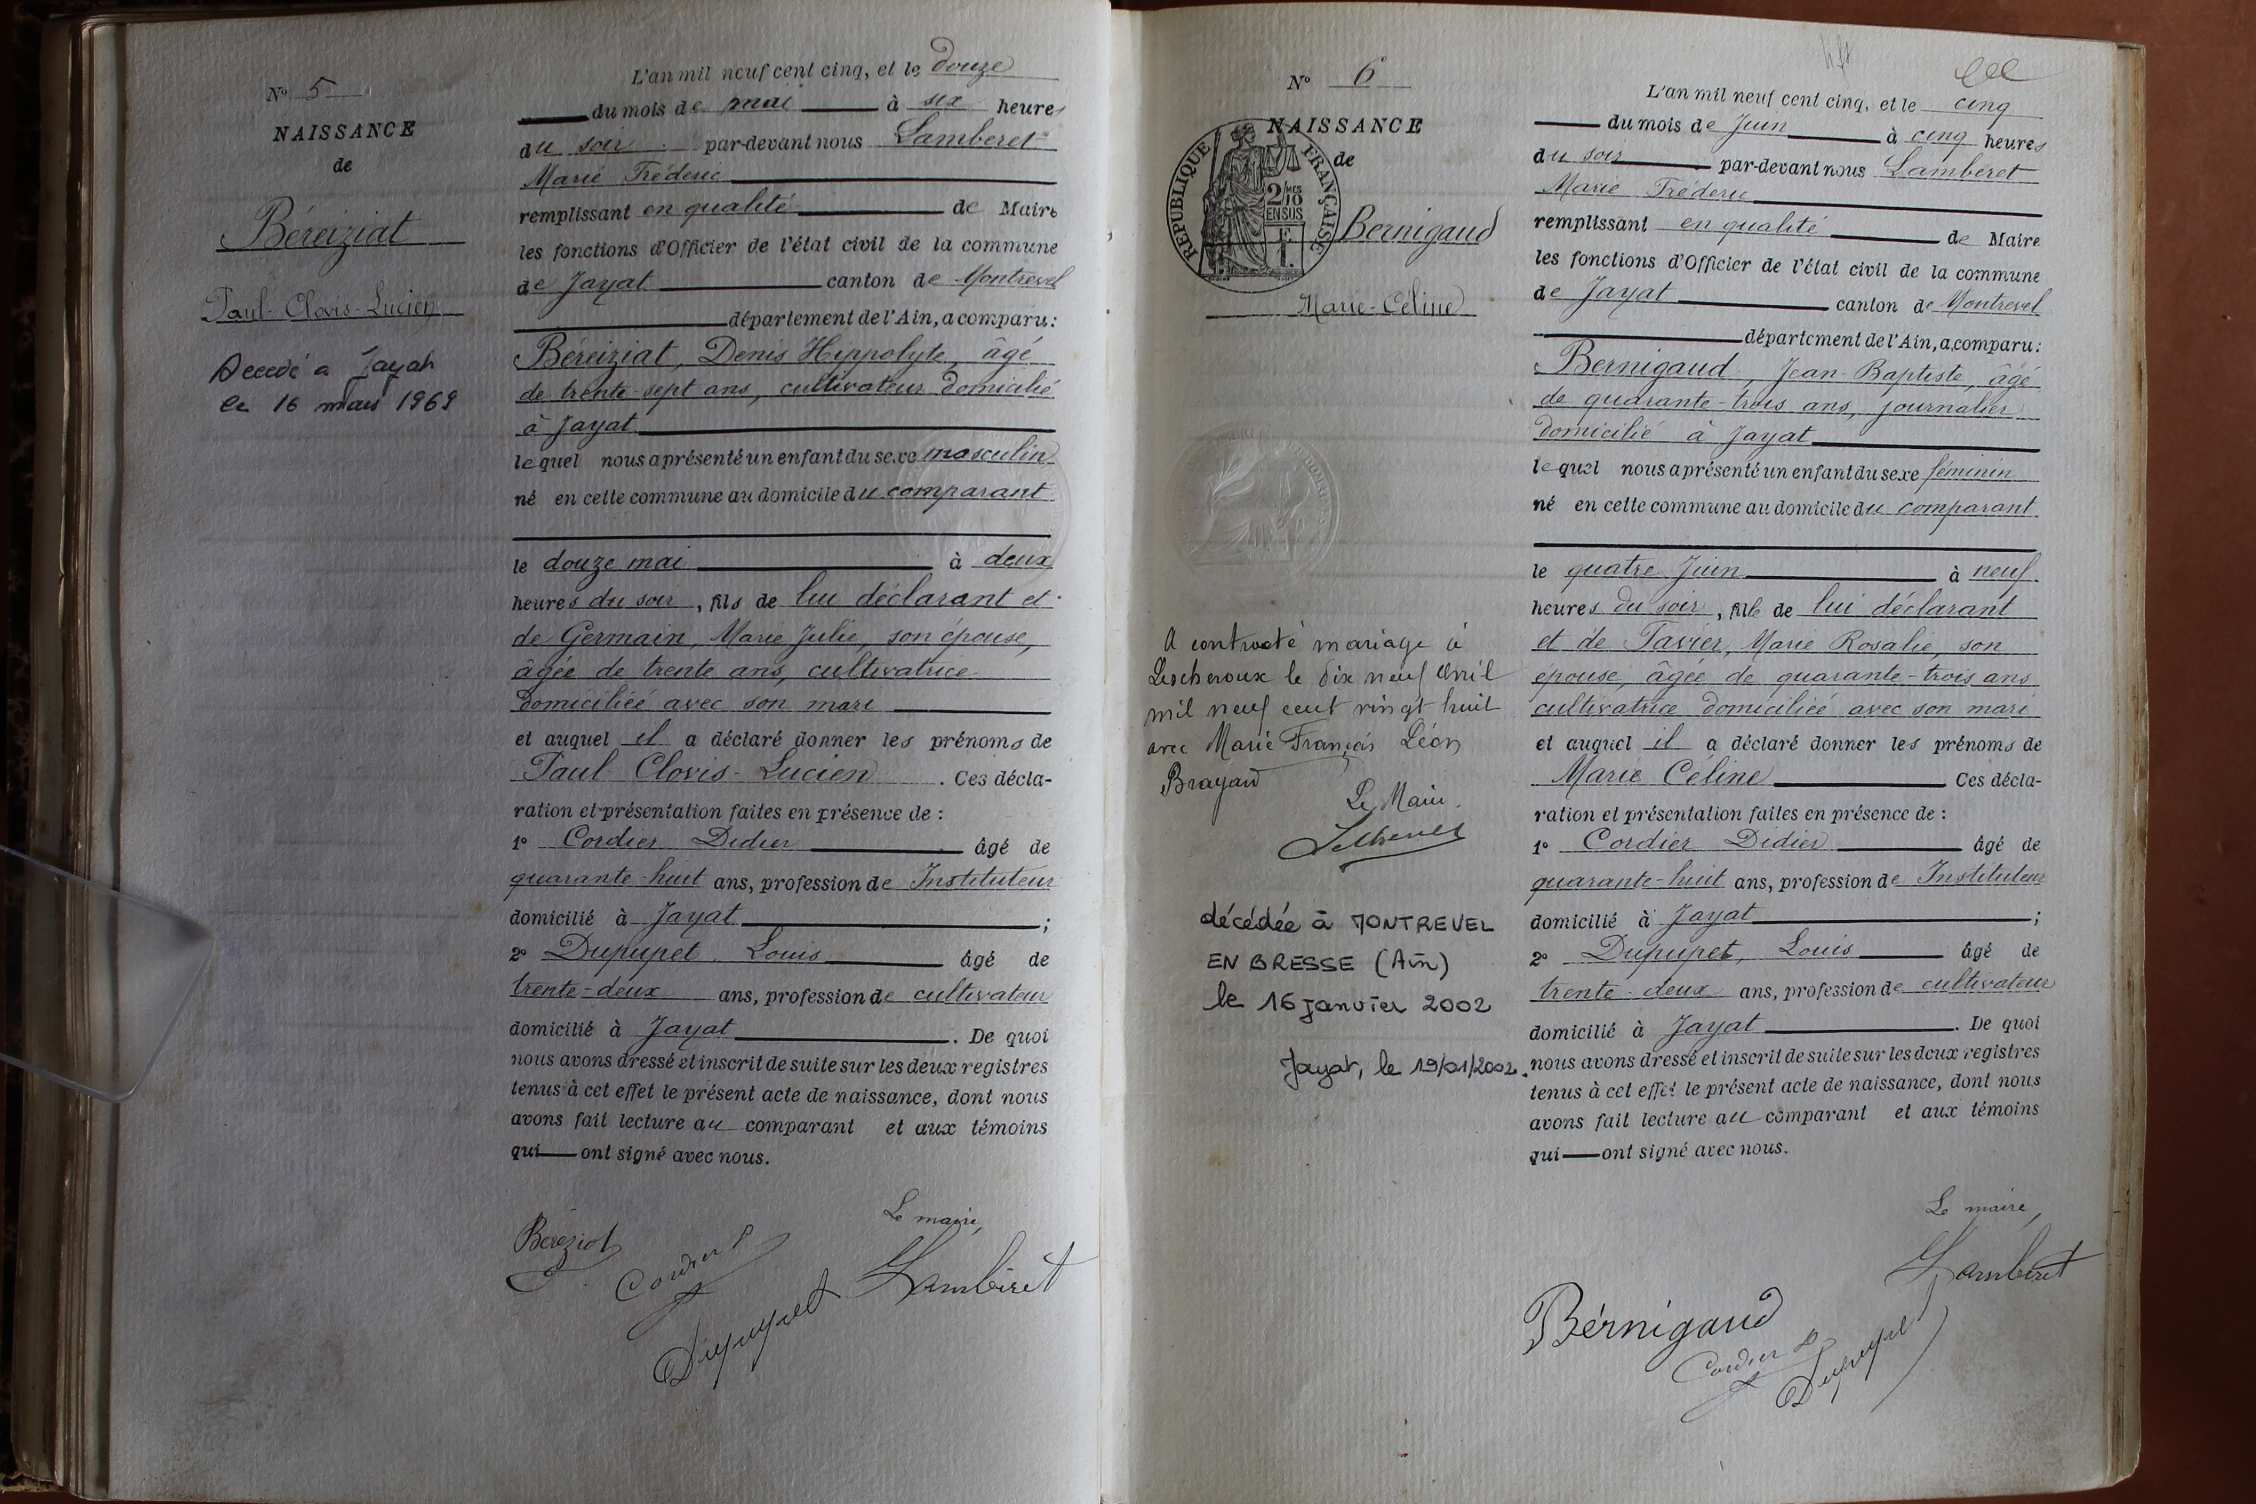 N° 5
NAISSANCE
de
Béreiziat
Paul-Clovis-Lucien
Decedé a Jayat
le 16 mars 1969
L'an mil neuf cent cinq, et le douze
du mois de mai à six heures
du soir par-devant nous Lamberet
Marie Fréderic
remplissant en qualité de Maire
les fonctions d'Officier de l'état civil de la commune
de Jayat canton de Montrevel
département de l'Ain, a comparu:
Béreiziat, Denis Hyppolyte, âgé
de trente-sept ans, cultivateur domicilié
à Jayat
lequel nous a présenté un enfant du sexe masculin
né en cette commune au domicile du comparant
le douze mai à deux
heures du soir, fils de lui déclarant et
de Germain, Marie Julie, son épouse,
âgée de trente ans, cultivatrice
domiciliée avec son mari
et auquel il a déclaré donner les prénoms de
Paul-Clovis-Lucien. Ces décla-
ration et présentation faites en présence de :
1° Cordier Didier âgé de
quarante-huit ans, profession de Instituteur
domicilié à Jayat ;
2° Dupupet Louis âgé de
trente-deux ans, profession de cultivateur
domicilié à Jayat. De quoi
nous avons dressé et inscrit de suite sur les deux registres
tenus à cet effet le présent acte de naissance, dont nous
avons fait lecture au comparant et aux témoins
qui ont signé avec nous.
Le maire,
Béréziat
Cordier D
Lamberet
Dupupet
N° 6
NAISSANCE
de
REPUBLIQUE FRANÇAISE
2/10 MES
EN SUS
Bernigaud
Marie-Céline
A contracté mariage à
Lescheroux le dix neuf Avril
mil neuf cent vingt huit
avec Marie François Léon
Brayard
Le Maire.
décédée à MONTREVEL
EN BRESSE (Ain)
le 16 janvier 2002
Jayat, le 19/01/2002.
L'an mil neuf cent cinq, et le cinq
du mois de Juin à cinq heures
du soir par-devant nous Lamberet
Marie Fréderic
remplissant en qualité de Maire
les fonctions d'Officier de l'état civil de la commune
de Jayat canton de Montrevel
département de l'Ain, a comparu:
Bernigaud, Jean-Baptiste, âgé
de quarante-trois ans, journalier
domicilié à Jayat
lequel nous a présenté un enfant du sexe féminin
né en cette commune au domicile du comparant
le quatre Juin à neuf
heures du soir, fille de lui déclarant
et de Tavier, Marie Rosalie, son
épouse, âgée de quarante-trois ans
cultivatrice domiciliée avec son mari
et auquel il a déclaré donner les prénoms de
Marie Céline Ces décla-
ration et présentation faites en présence de :
1° Cordier Didier âgé de
quarante-huit ans, profession de Instituteur
domicilié à Jayat ;
2° Dupupet, Louis âgé de
trente-deux ans, profession de cultivateur
domicilié à Jayat. De quoi
nous avons dressé et inscrit de suite sur les deux registres
tenus à cet effet le présent acte de naissance, dont nous
avons fait lecture au comparant et aux témoins
qui ont signé avec nous.
Le maire,
Lamberet
Bérnigaud
Cordier D
Dupupet